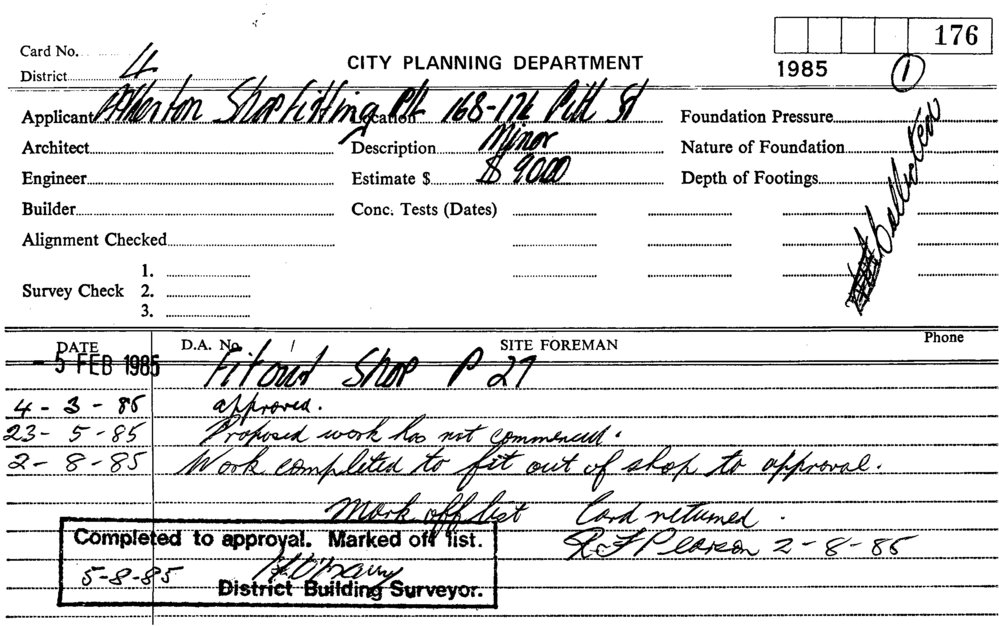 176
Card No.
CITY PLANNING DEPARTMENT
1985
1
District 4
Applicant Atherton Shopfitting P/L Location 168-176 Pitt St Foundation Pressure
Architect Description Minor Nature of Foundation
Engineer Estimate $ $ 9000 Depth of Footings
Builder Conc. Tests (Dates)
Alignment Checked
1.
Survey Check 2.
3.
DATE D.A. No. / SITE FOREMAN Phone
- 5 FEB 1985 Fitout Shop P 27
4 - 3 - 85 approved.
23 - 5 - 85 Proposed work has not commenced.
2 - 8 - 85 Work completed to fit out of shop to approval.
Mark off list Card returned.
R F Pearson 2-8-85
Completed to approval. Marked off list.
5-8-85
District Building Surveyor.